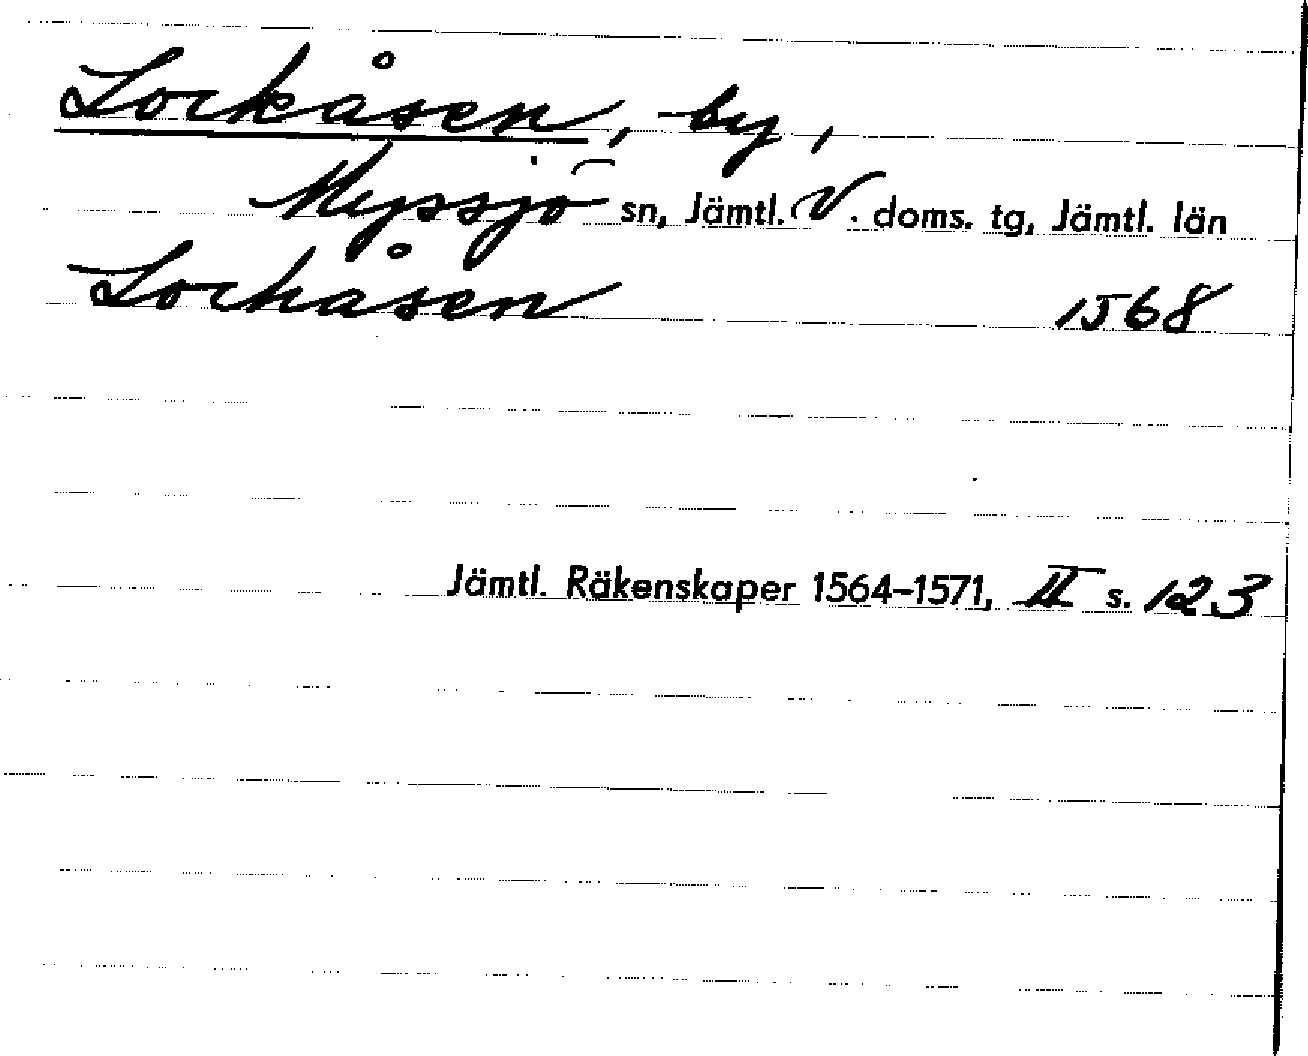 Lockåsen, by,
Mypsjö sn, Jämtl. V. doms. tg, Jämtl. län
Lockåsen 1568
Jämtl. Räkenskaper 1564–1571, II s. 123